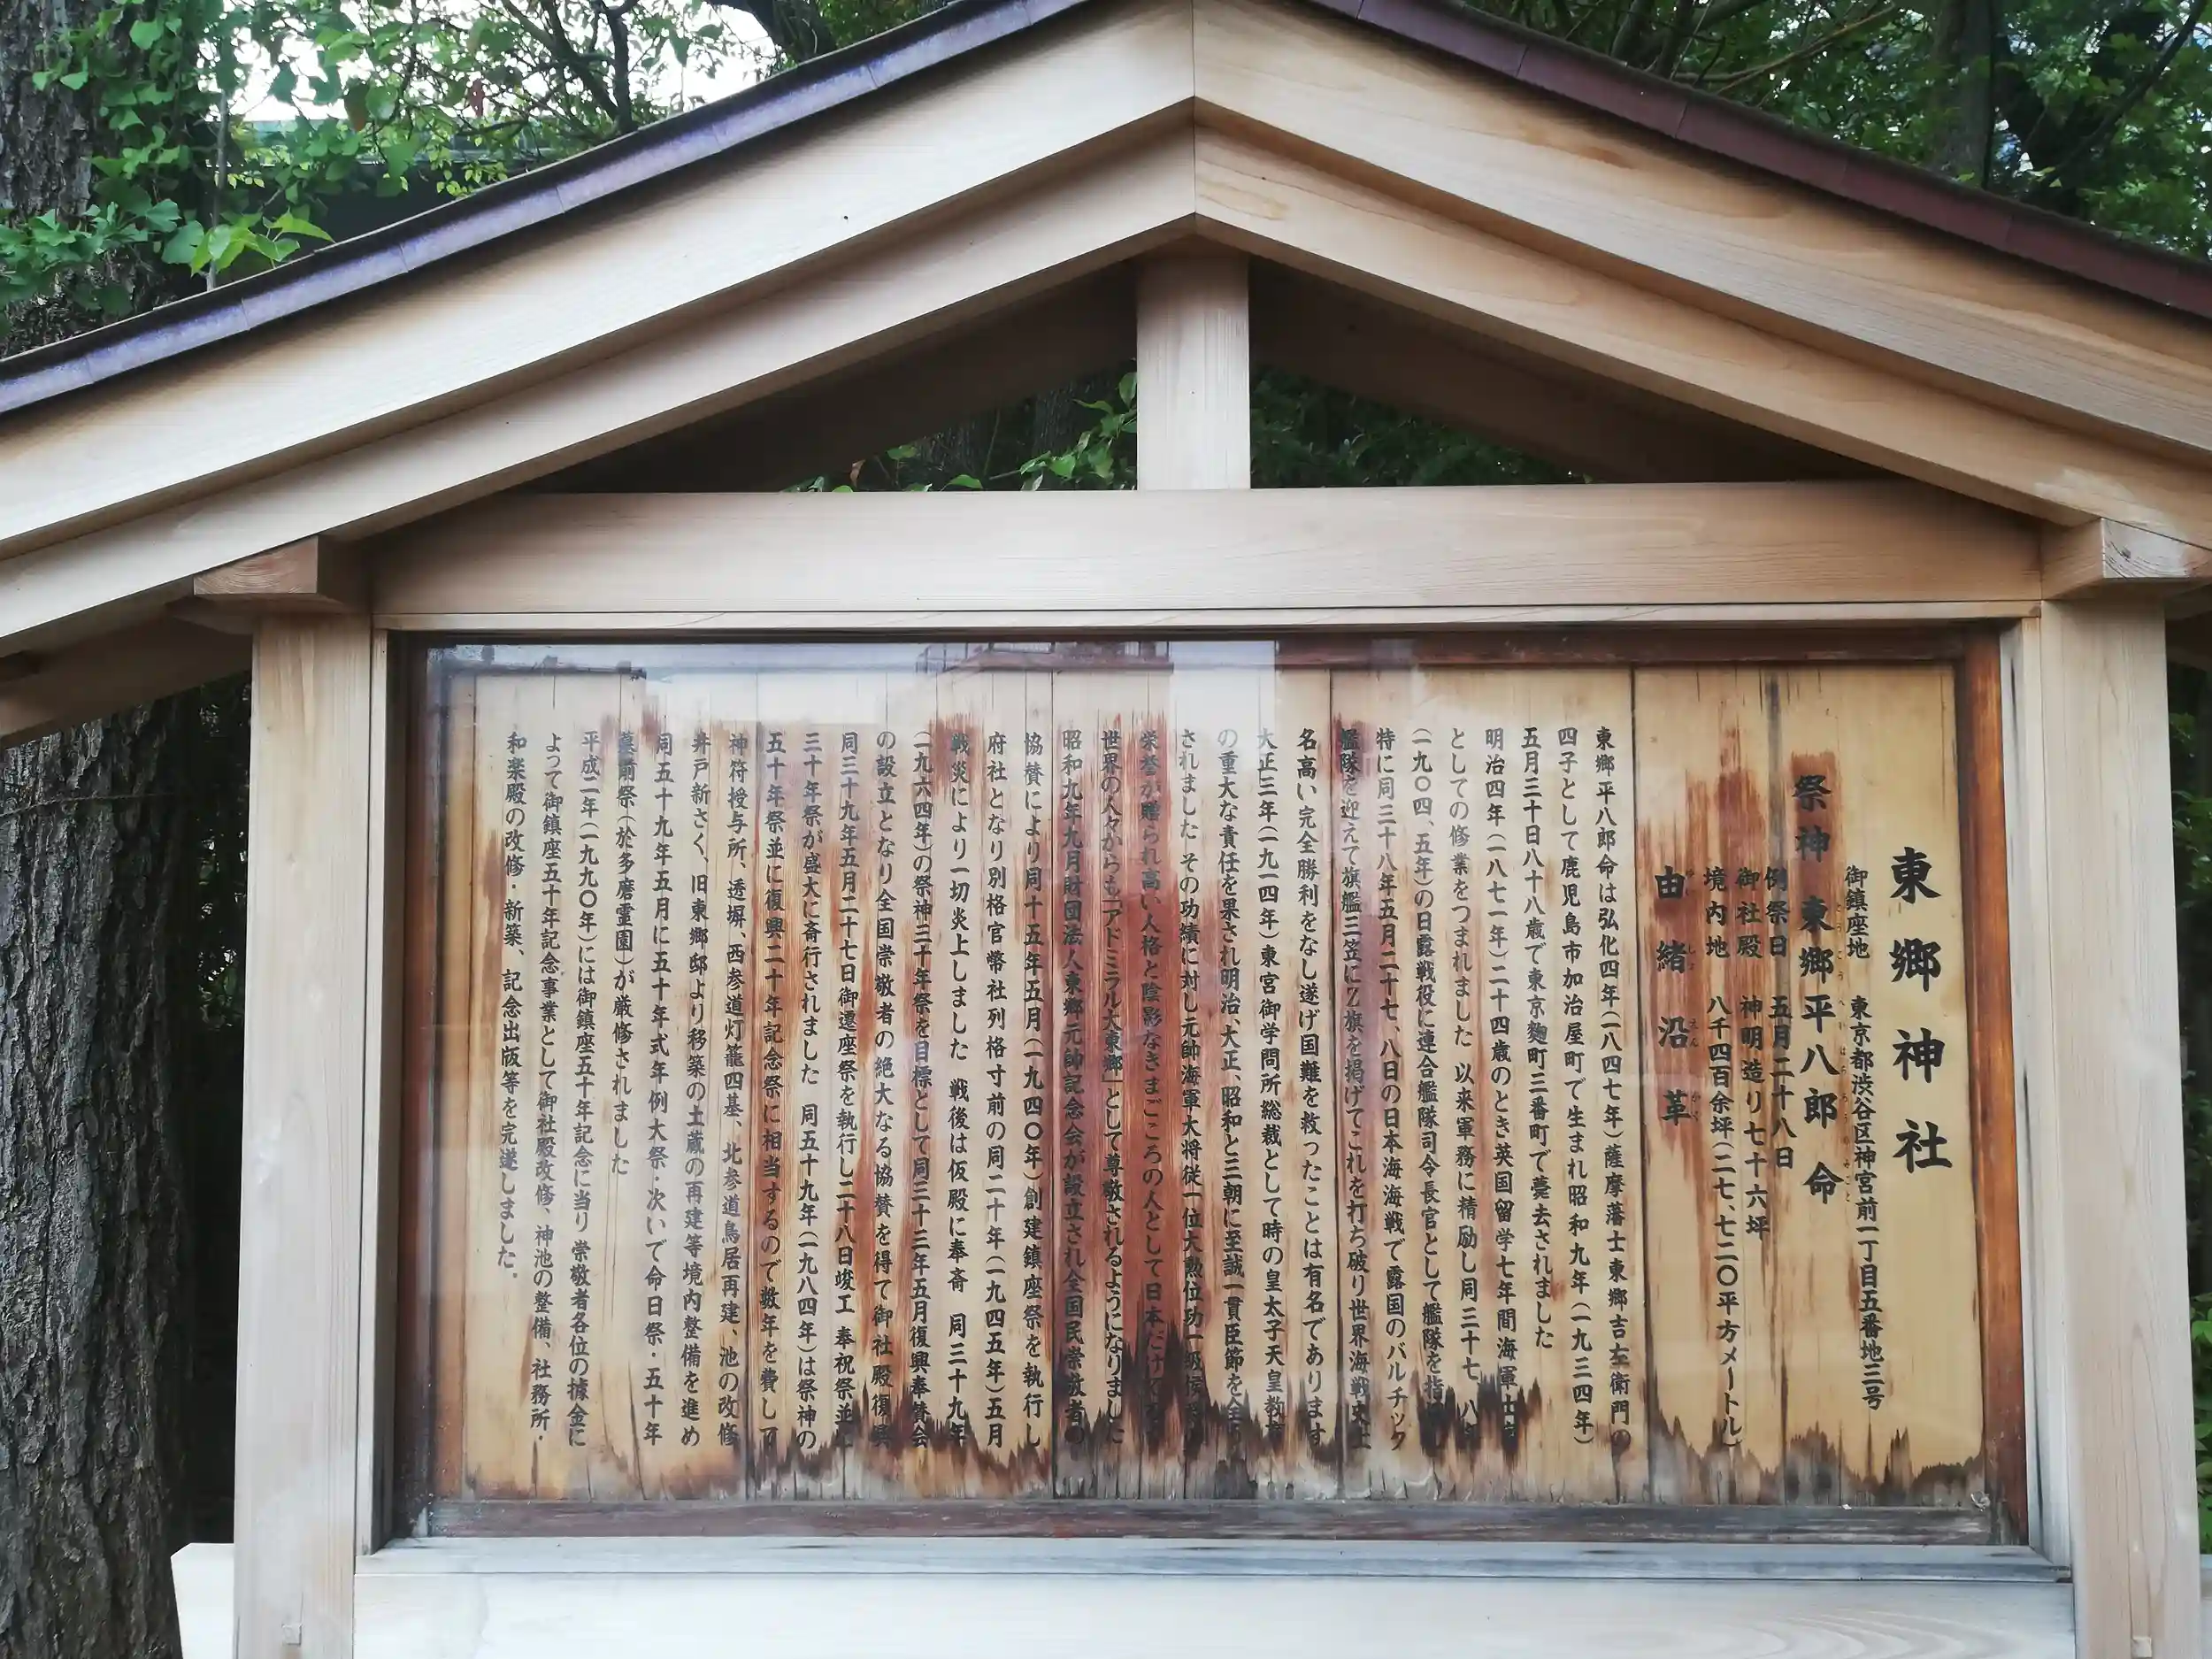 東郷神社
御鎮座地 東京都渋谷区神宮前一丁目五番地三号
祭神 東郷平八郎命
とうごうへいはちろうのみこと
例祭日 五月二十八日
御社殿 神明造り七十六坪
境内地 八千四百余坪(二七、七二〇平方メートル)
由緒沿革
ゆしょえんかく
東郷平八郎命は弘化四年(一八四七年)薩摩藩士東郷吉左衛門の
四子として鹿児島市加治屋町で生まれ昭和九年(一九三四年)
五月三十日八十八歳で東京麴町三番町で薨去されました
明治四年(一八七一年)二十四歳のとき英国留学七年間海軍士官
としての修業をつまれました 以来軍務に精励し同三十七、八年
(一九〇四、五年)の日露戦役に連合艦隊司令長官として艦隊を指揮し
特に同三十八年五月二十七、八日の日本海海戦で露国のバルチック
艦隊を迎えて旗艦三笠にZ旗を掲げてこれを打ち破り世界海戦史上
名高い完全勝利をなし遂げ国難を救ったことは有名であります
大正三年(一九一四年)東宮御学問所総裁として時の皇太子天皇教育
の重大な責任を果され明治、大正、昭和と三朝に至誠一貫臣節を全う
されました その功績に対し元帥海軍大将従一位大勲位功一級侯爵の
栄誉が贈られ高い人格と陰影なきまごころの人として日本だけでなく
世界の人々からも「アドミラル大東郷」として尊敬されるようになりました
昭和九年九月財団法人東郷元帥記念会が設立され全国民崇敬者の
協賛により同十五年五月(一九四〇年)創建鎮座祭を執行し
府社となり別格官幣社列格寸前の同二十年(一九四五年)五月
戦災により一切炎上しました 戦後は仮殿に奉斎 同三十九年
(一九六四年)の祭神三十年祭を目標として同三十三年五月復興奉賛会
の設立となり全国崇敬者の絶大なる協賛を得て御社殿復興
同三十九年五月二十七日御遷座祭を執行し二十八日竣工奉祝祭並に
三十年祭が盛大に斎行されました 同五十九年(一九八四年)は祭神の
五十年祭並に復興二十年記念祭に相当するので数年を費して
神符授与所、透塀、西参道灯籠四基、北参道鳥居再建、池の改修
井戸新さく、旧東郷邸より移築の土蔵の再建等境内整備を進め
同五十九年五月に五十年式年例大祭・次いで命日祭・五十年
墓前祭(於多磨霊園)が厳修されました
平成二年(一九九〇年)には御鎮座五十年記念に当り崇敬者各位の據金に
よって御鎮座五十年記念事業として御社殿改修、神池の整備、社務所・
和楽殿の改修・新築、記念出版等を完遂しました。